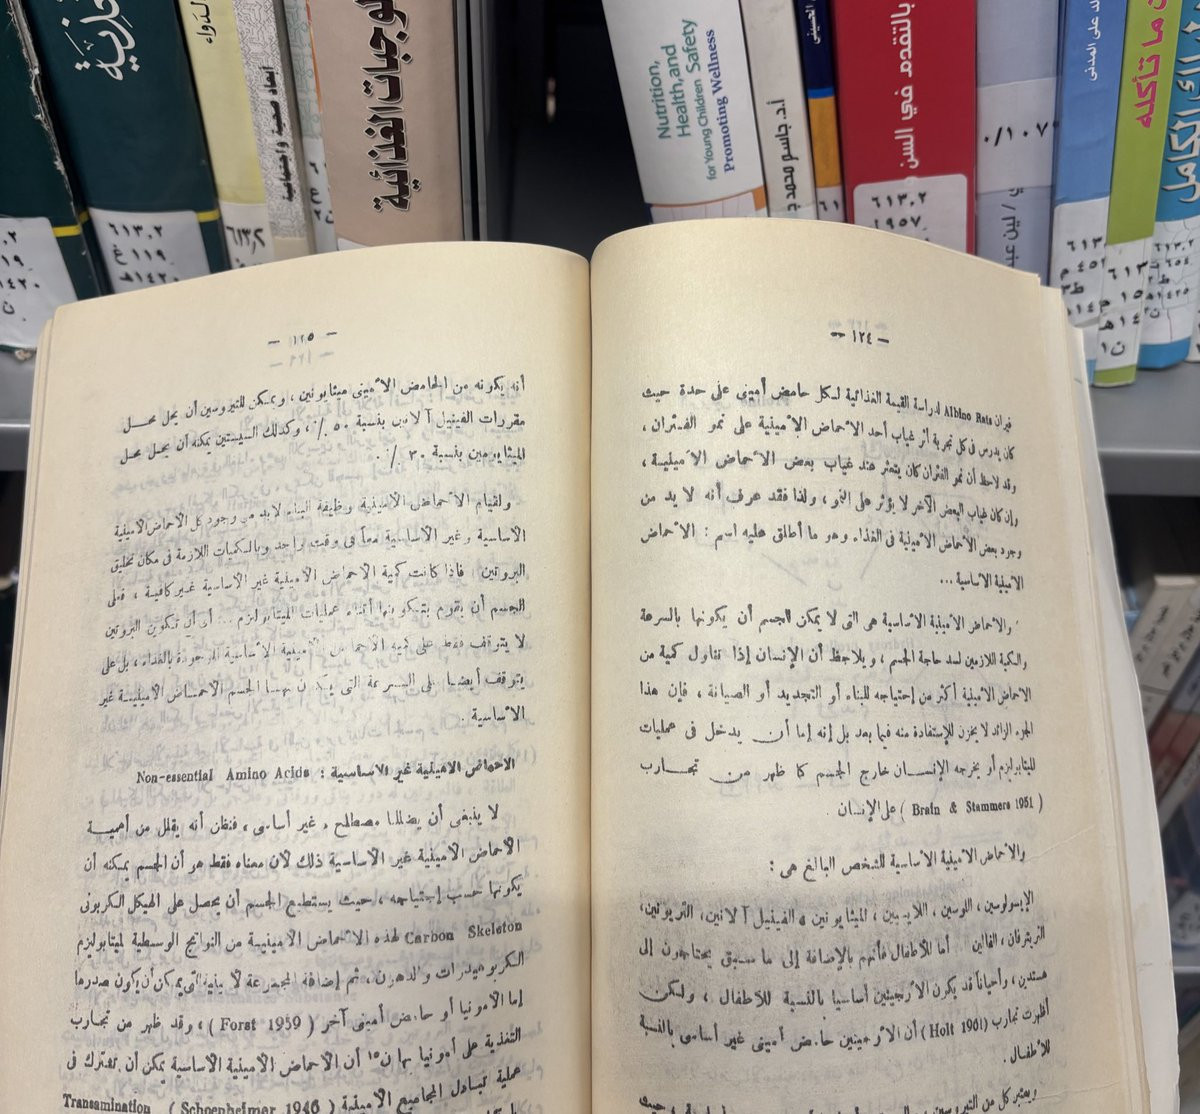 الدواء
ابعاد صحية واجتماعية
الوجبات الغذائية
Nutrition,
Health, and Safety
for Young Children
Promoting Wellness
أ.د. جاسم محمد
الحسيني
بالتقدم في السن
خالد على المدنى
ما تأكله
الكامل
٦١٣,٢
١١٩ غ
١٤٢٠هـ
٦١٣,٢
٦١٣,٢
٩٥٧
١٠٧/
— ١٢٤ —
فيران Albino Rats لدراسة القيمة الغذائية لكل حامض أميني على حدة حيث
كان يدرس في كل تجربة أثر غياب أحد الأحماض الأمينية على نمو الفئران ،
وقد لاحظ أن نمو الفئران كان يتعثر عند غياب بعض الأحماض الأمينية ،
وإن كان غياب البعض الآخر لا يؤثر على النمو ، ولذا فقد عرف أنه لا بد من
وجود بعض الأحماض الأمينية في الغذاء وهو ما أطلق عليه اسم : الأحماض
الأمينية الأساسية ...
والأحماض الأمينية الأساسية هي التي لا يمكن الجسم أن يكونها بالسرعة
والكمية اللازمين لسد حاجة الجسم ، ويلاحظ أن الإنسان إذا تناول كمية من
الأحماض الأمينية أكثر من إحتياجه للبناء أو التجديد أو الصيانة ، فإن هذا
الجزء الزائد لا يخزن للإستفادة منه فيما بعد بل إنه إما أن يدخل في عمليات
الميتابولزم أو يخرجه الإنسان خارج الجسم كما ظهر من تجارب
( Brafn & Stammers 1951 ) على الإنسان .
والأحماض الأمينية الأساسية للشخص البالغ هي :
الإيسولوسين ، اللوسين ، اللايسين ، الميثايونين ، الفينيل آلانين ، الثريونين ،
التربتوفان ، الفالين . أما الأطفال فأنهم بالإضافة إلى ما سبق يحتاجون إلى
هستدين ، وأحياناً قد يكون الأرجينين أساسيا بالنسبة للأطفال ، ولكن
أظهرت تجارب (Holt 1961) أن الأرجينين حامض أميني غير أساسي بالنسبة
للأطفال .
ويعتبر كل من التيروسين
— ١٢٥ —
أنه يكونه من الحامض الأميني ميثايونين ، ويمكن للتيروسين أن يحل محل
مقررات الفينيل آلانين بنسبة ٥٠ ٪ ، وكذلك السيستين يمكنه أن يحل محل
الميثايونين بنسبة ٣٠ ٪ .
ولقيام الأحماض الأمينية وظيفة البناء لا بد من وجود كل الأحماض الأمينية
الأساسية وغير الأساسية معاً في وقت واحد وبالكميات اللازمة في مكان تخليق
البروتين . فإذا كانت كمية الأحماض الأمينية غير الأساسية غير كافية ، فعلى
الجسم أن يقوم بتكوينها أثناء عمليات الميتابولزم ... أى أن تكوين البروتين
لا يتوقف فقط على كمية الأحماض الأمينية الأساسية الموجودة بالغذاء ، بل على
يتوقف أيضا على السرعة التي يكون بها الجسم الأحماض الأمينية غير
الأساسية .
الأحماض الأمينية غير الأساسية : Non-essential Amino Acids
لا ينبغي أن يضللنا مصطلح « غير أساسي » فنظن أنه يقلل من أهمية
الأحماض الأمينية غير الأساسية ذلك لأن معناه فقط هو أن الجسم يمكنه أن
يكونها حسب إحتياجه ، حيث يستطيع الجسم أن يحصل على الهيكل الكربوني
Carbon Skeleton لهذه الأحماض الأمينية من النواتج الوسطية لميتابولزم
الكربوهيدرات والدهون ، ثم إضافة المجموعة الأمينية التي يمكن أن يكون مصدرها
إما الأمونيا أو حامض أميني آخر ( Forst 1959 ) ، وقد ظهر من تجارب
التغذية على أمونيا بها ن١٥ أن الأحماض الأمينية الأساسية يمكن أن تشترك في
عملية تبادل المجاميع الأمينية ( Schoenheimer 1946 ) Transamination